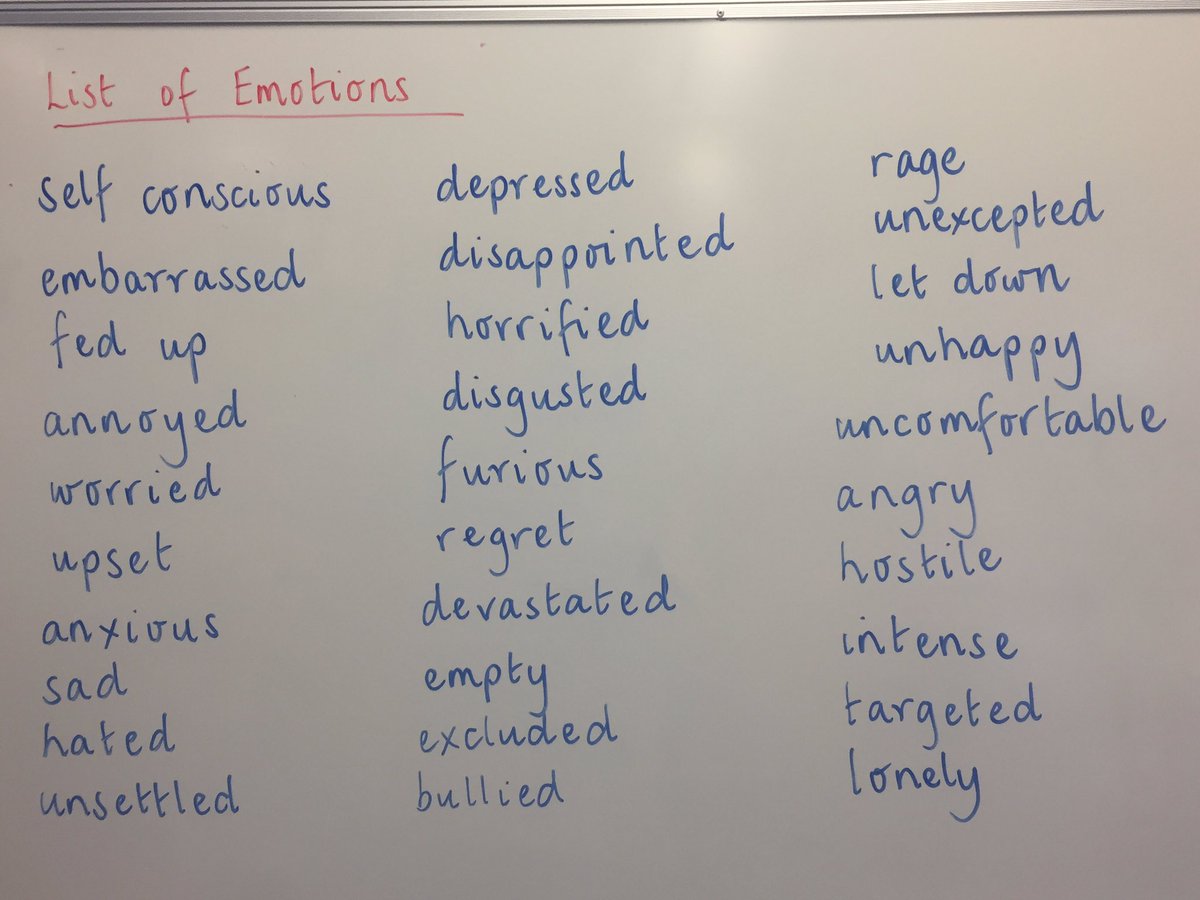 List of Emotions
self conscious
embarrassed
fed up
annoyed
worried
upset
anxious
sad
hated
unsettled
depressed
disappointed
horrified
disgusted
furious
regret
devastated
empty
excluded
bullied
rage
unexcepted
let down
unhappy
uncomfortable
angry
hostile
intense
targeted
lonely